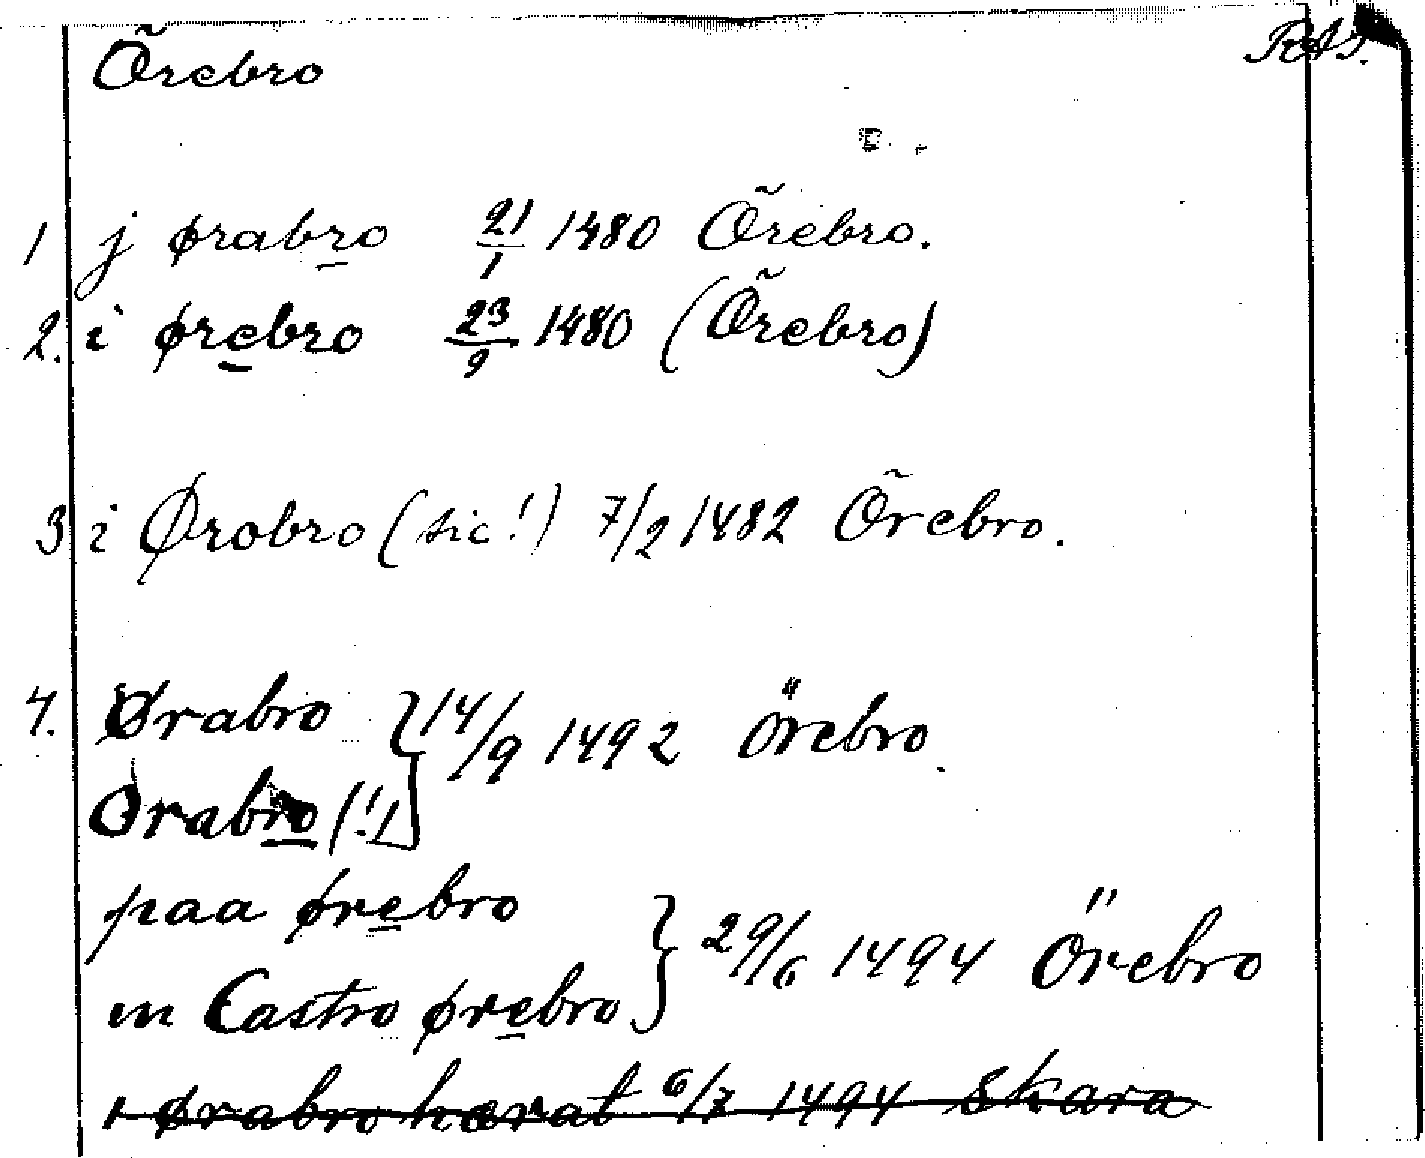 Örebro RAP.
1 j ørabro 21/1 1480 Örebro.
2. i ørebro 23/9 1480 (Örebro)
3 i Ørobro (sic!) 7/2 1482 Örebro.
4. Ørabro } 14/9 1492 Örebro.
Orabro (!)
paa ørebro } 29/6 1494 Örebro
in Castro ørebro
i ørabro hærat 6/7 1494 Skara